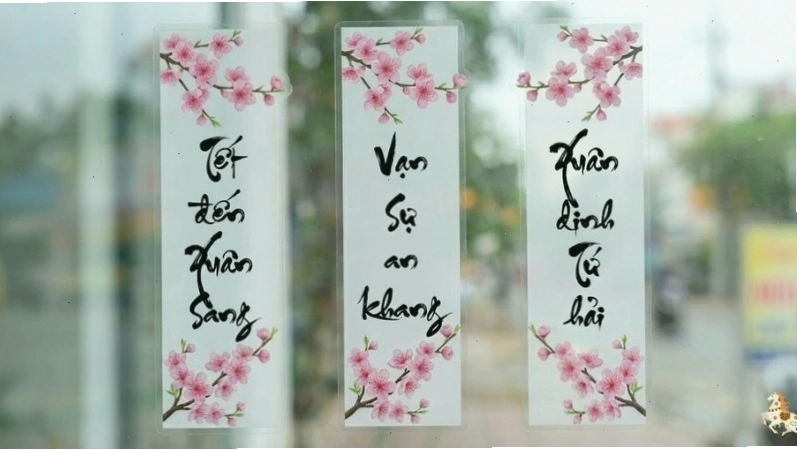 Tết
đến
Xuân
Sang
Vạn
Sự
an
khang
Xuân
định
Tứ
hải